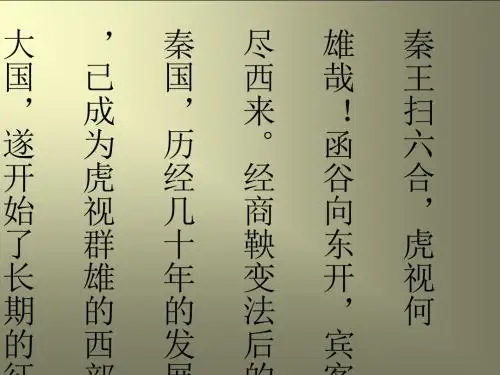 秦王扫六合，虎视何
雄哉！函谷向东开，宾客
尽西来。经商鞅变法后的
秦国，历经几十年的发展
，已成为虎视群雄的西部
大国，遂开始了长期的征